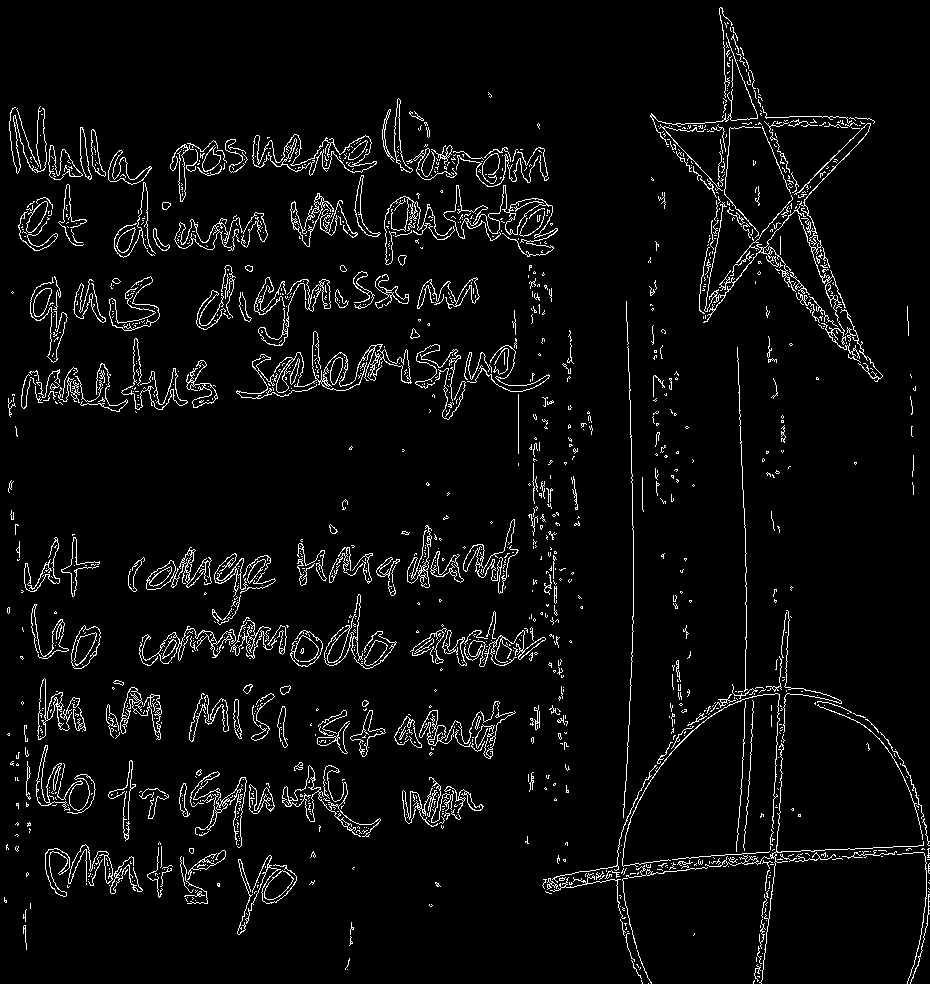 Nulla posuere lorem
et diam vulputate
quis dignissim
metus scelerisque
Ut congue tincidunt
leo commodo auctor
in in nisi sit amet
leo tristique non